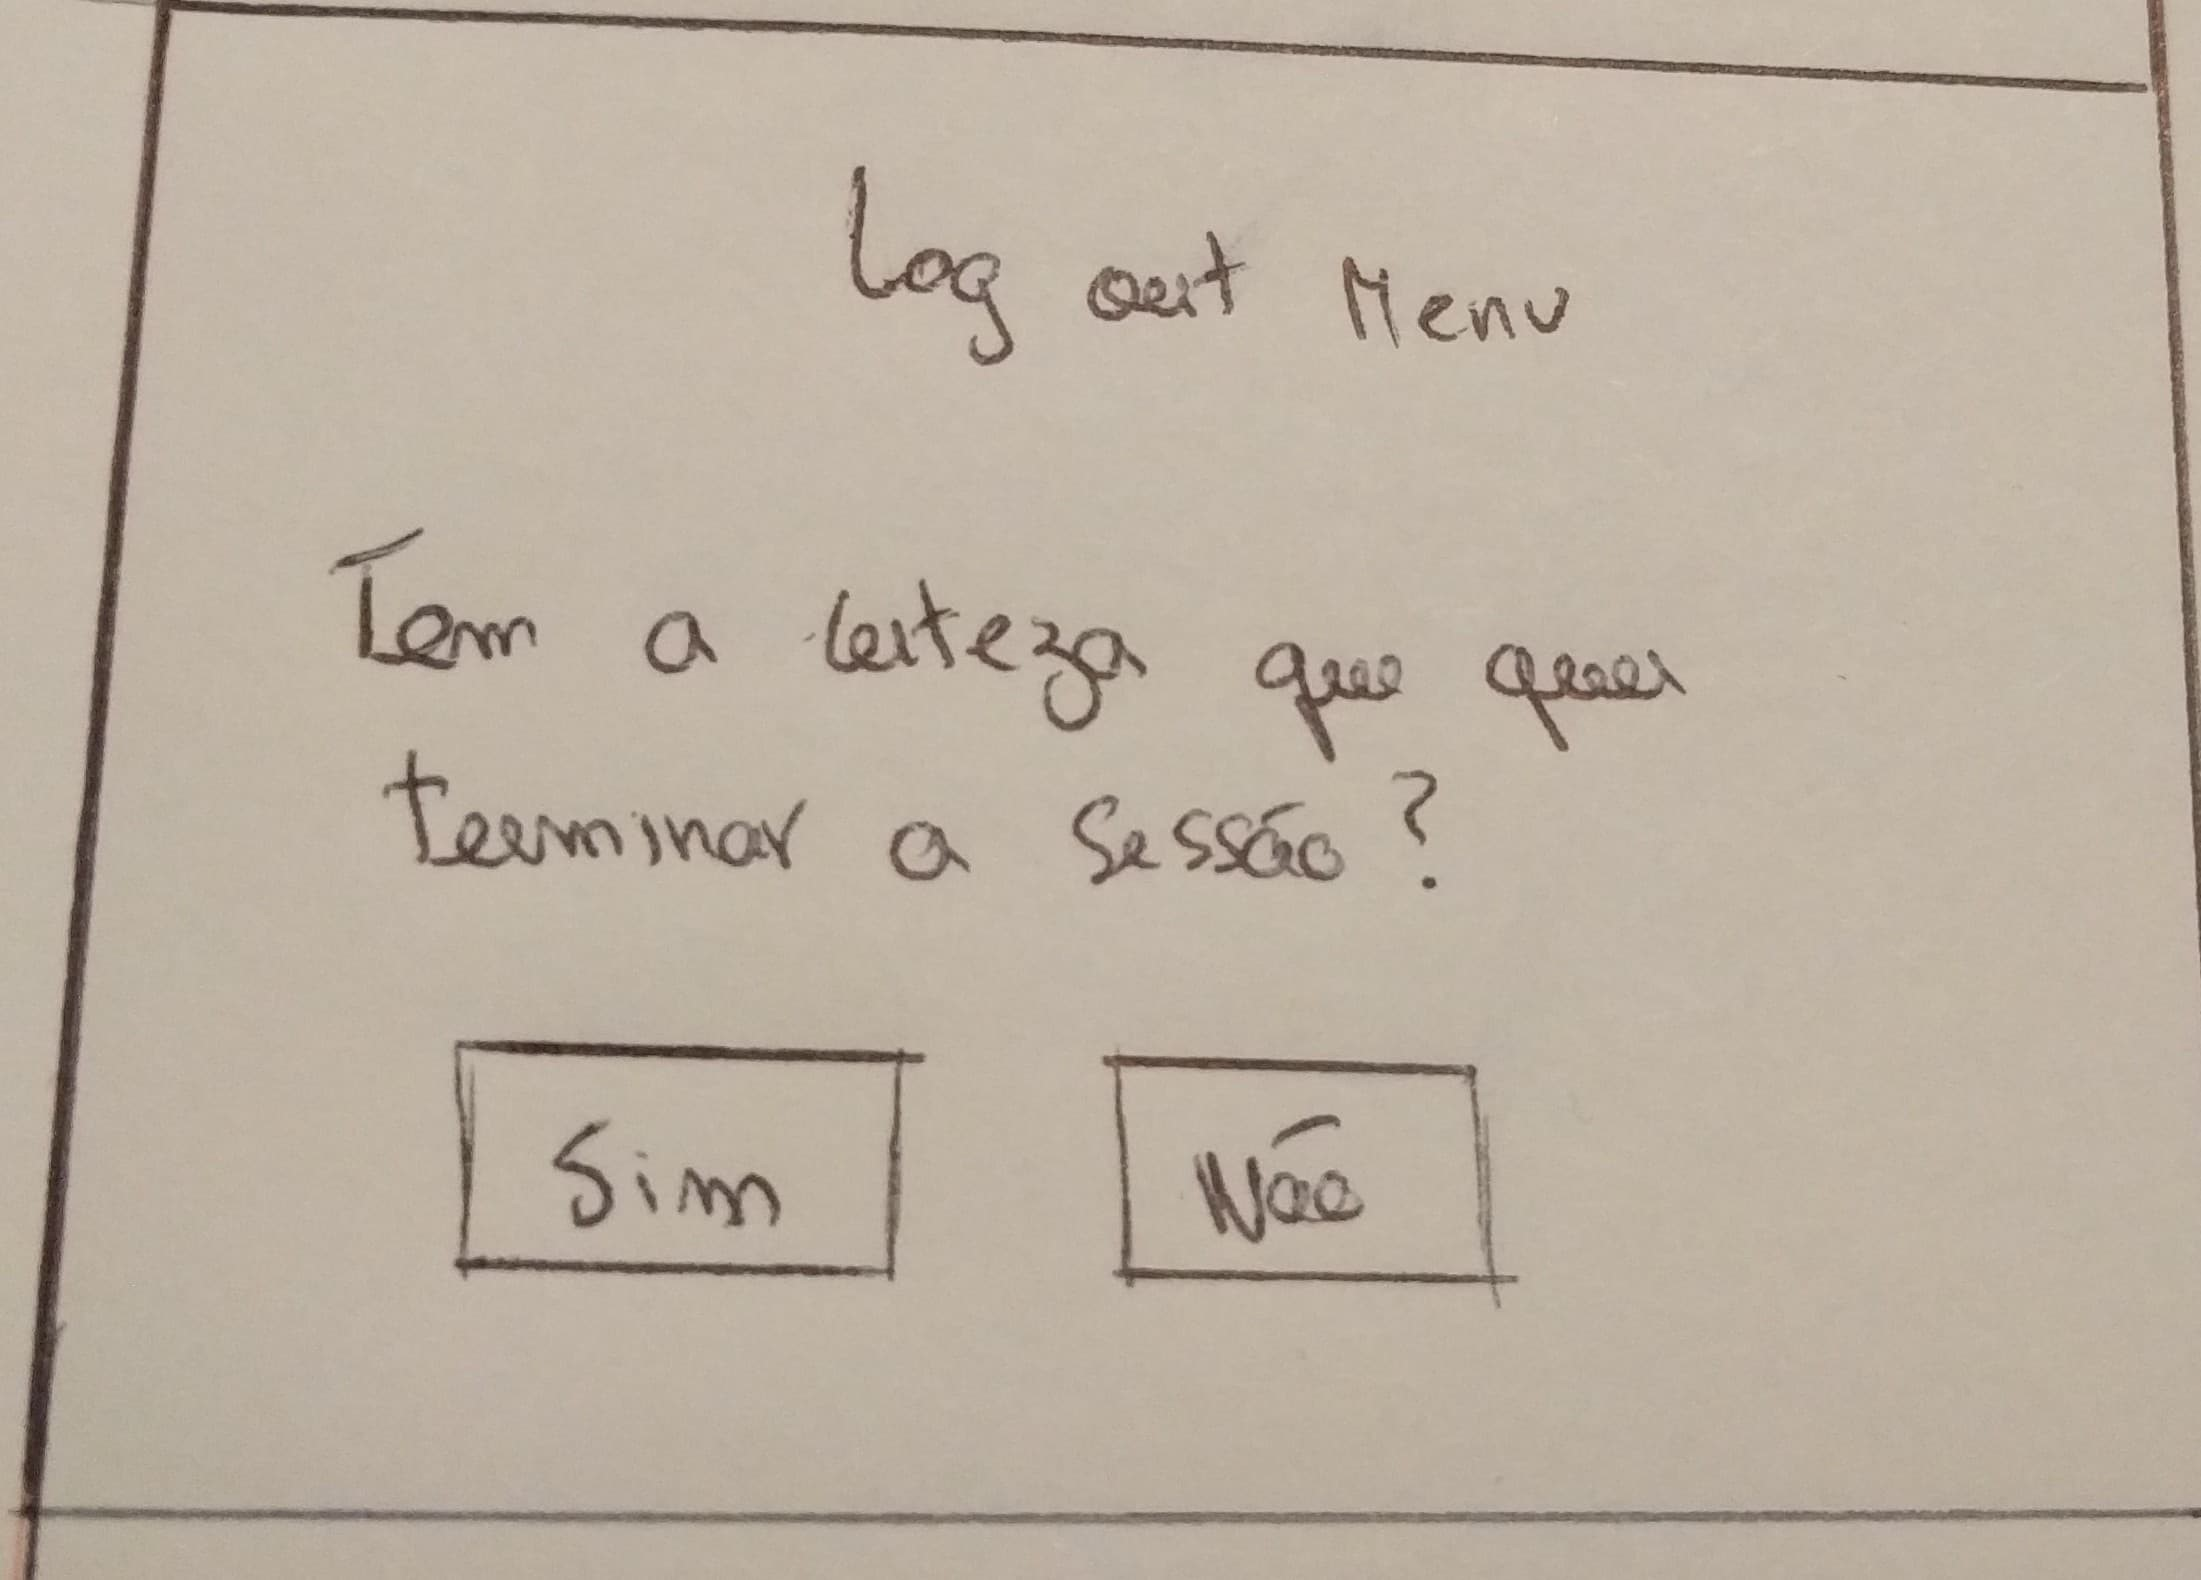 Log out Menu
Tem a certeza que quer
terminar a Sessão?
Sim
Não